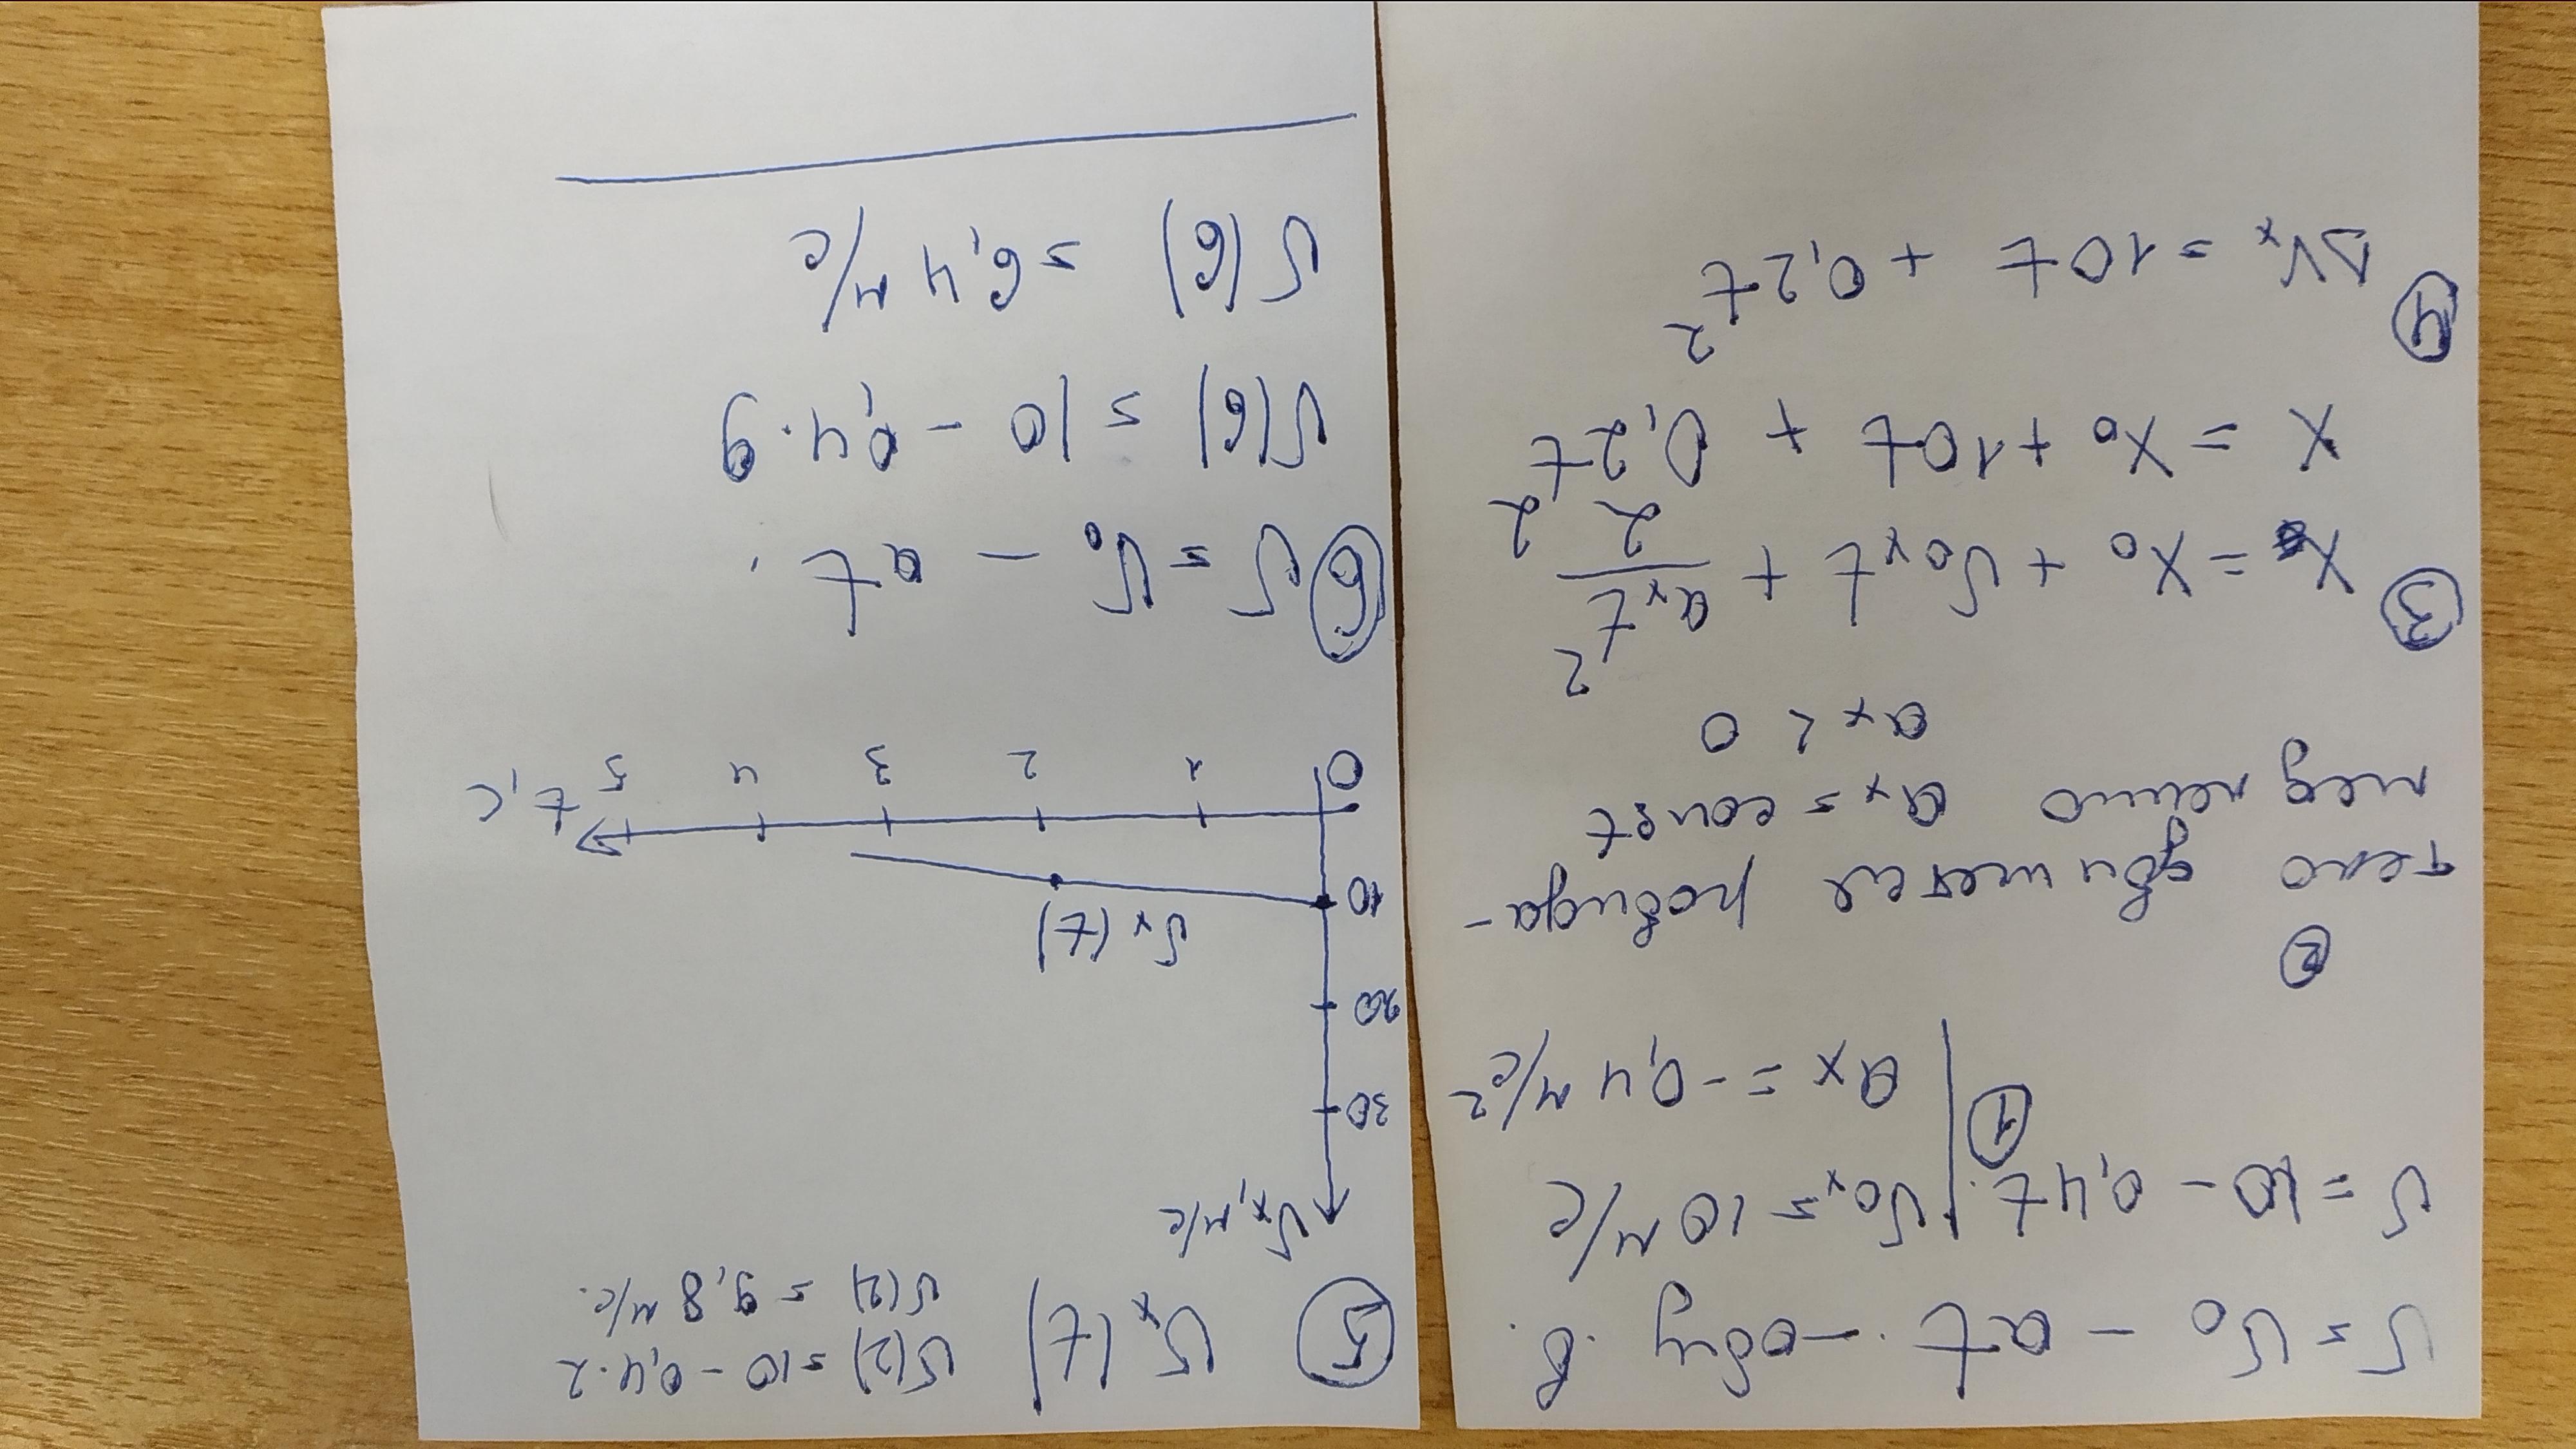 υ = υ₀ - at. - общ. в.
υ = 10 - 0,4t. | υ₀ₓ = 10 м/с
① aₓ = -0,4 м/с²
②
тело движется равноза-
медленно aₓ = const
aₓ < 0
③ x = x₀ + υ₀ₓt + aₓt²/2
x = x₀ + 10t + 0,2t²
④ ΔVₓ = 10t + 0,2t²
⑤ υₓ(t) υ(2) = 10 - 0,4·2
υ(2) = 9,8 м/с.
υₓ, м/с
30
20
υₓ(t)
10
0 1 2 3 4 5 t, с
⑥ υ = υ₀ - at.
υ(6) = 10 - 0,4·9
υ(6) = 6,4 м/с